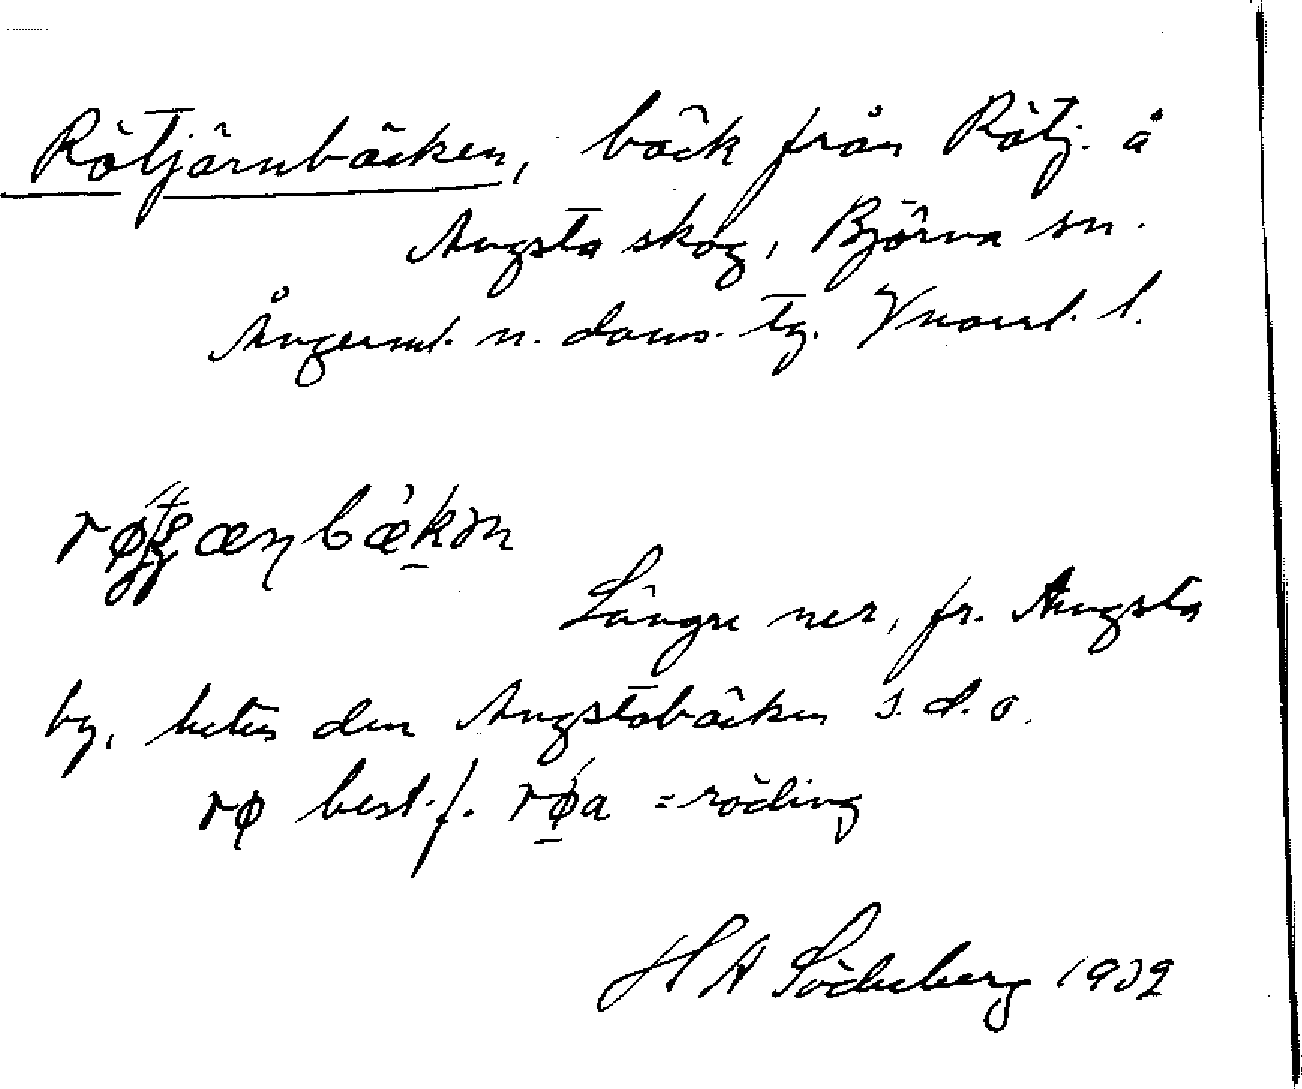 Rötjärnbäcken, bäck från Rötj. å
Angsta skog, Björna sn.
Ångerml. n. doms. tg. Vnorrl. l.
bækən
Längre ner, fr. Angsta
by, heter den Angstabäcken s.d.o.
rø best. f. rǿa = röding
H A Söderberg 1932